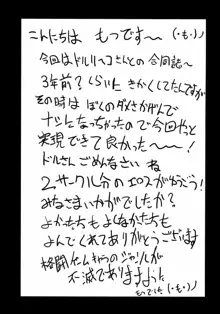 こんにちは もつです〜 (・も・)ノ
今回はドルリヘコさんとの合同誌〜
3年前?くらいに きかくしてたんですが
その時は ぼくのダメさかげんで
ナシになっちゃったので今回やっと
実現できて良かった〜〜!
ドルさんごめんなさい ね
2サークル分のエロスがゆうごう!
みなさまいかがでしたか?
よかったらも よしなかたちも
よんでくれてありがとうございます
格闘ゲームキャラのジャンルが
不滅でありますように
もつでした (・も・)ノ